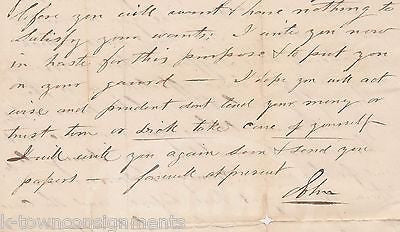 before you will want & have nothing to
satisfy your wants. I write you now
in haste for this purpose & to put you
on your guard — I hope you will act
wise and prudent dont lend your money or
trust him or Dick take care of yourself
I will write you again soon & send you
papers — farewell at present
John
k-townconsignments